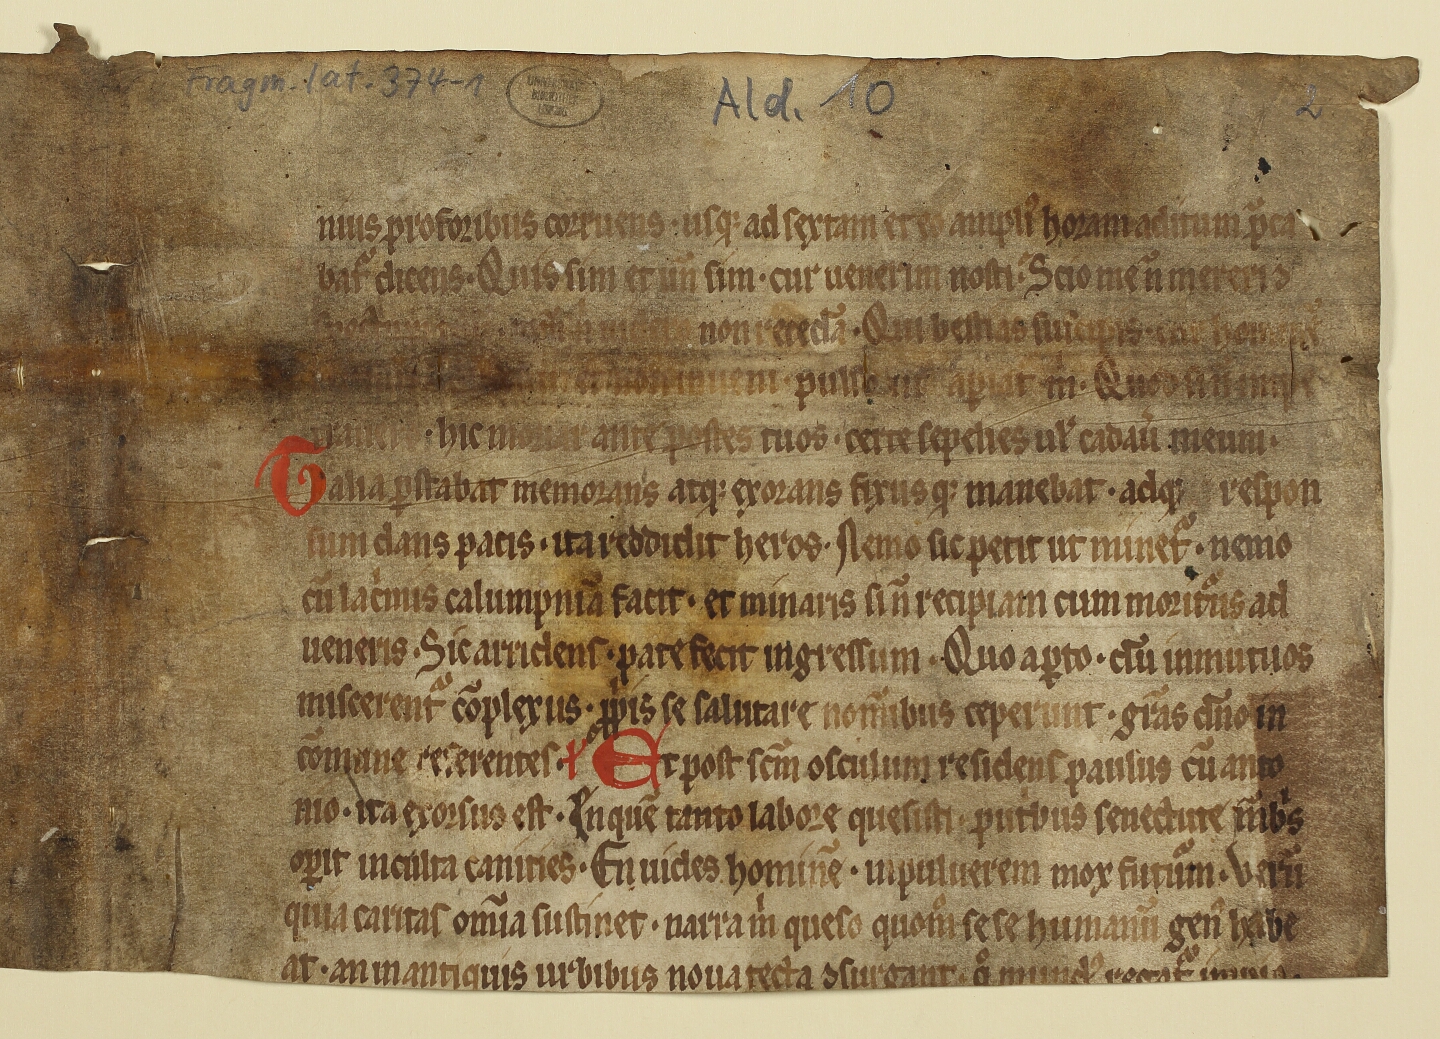 Fragm. lat. 374-1
Ald. 10
2
nius pro foribus corruens · usq; ad sextam et eo ampli᷒ horam aditum p̄ca
bat᷑ dicens · Quis sim et uñ sim · cur uenerim nosti · Scio me ñ mereri
non recedā · Qui bestias suscipis · cur
pulso ut apiat᷑ m̄ · Quod si ñ
hic moriar ante postes tuos · certe sepelies ul᷑ cadau᷑ meum ·
Talia ꝑstabat memorans atq; exorans fixusq; manebat · adq; respon
sum dans pacis · ita reddidit heros · Nemo sic petit ut minet᷑ · nemo
cū lac᷑mis calumpniā facit · et minaris si ñ recipiam cum morit᷑us ad
ueneris · Sic arridens · patefecit ingressum · Quo aꝑto · dū inmutuos
miscerent᷑ cōplexus · ꝓpis se salutare nom̄ibus ceperunt · gr̄as dn̄o in
cōmune referentes · Et post sc̄m osculum residens paulus cū anto
nio · ita exorsus est · En quē tanto labore quesisti · putbus senectute mēbs
oꝑit inculta canities · En uides hominē · inpuluerem mox futur᷑m · Verū
quia caritas om̄ia sustinet · narra m̄ queso quom᷑ sese humanū gen᷒ habe
at · an in antiquis urbibus noua tecta ɔsurgant · mund᷒ regat᷑ inpio ·